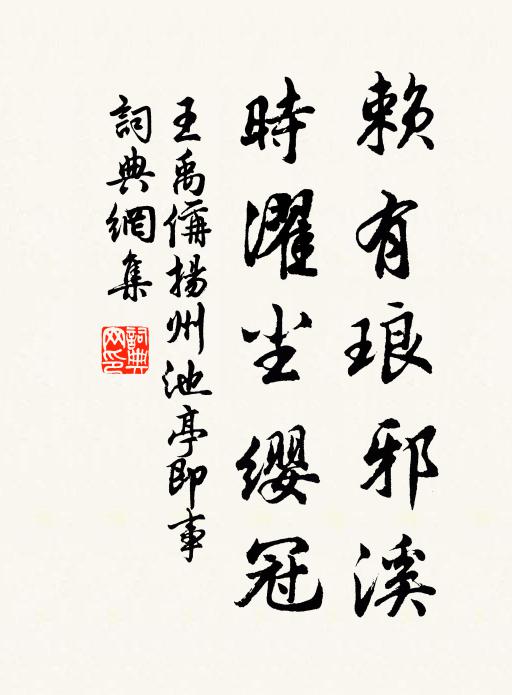 賴有琅邪溪
時濯尘缨冠
王禹偁揚州池亭即事
詞典網集
詞典网印